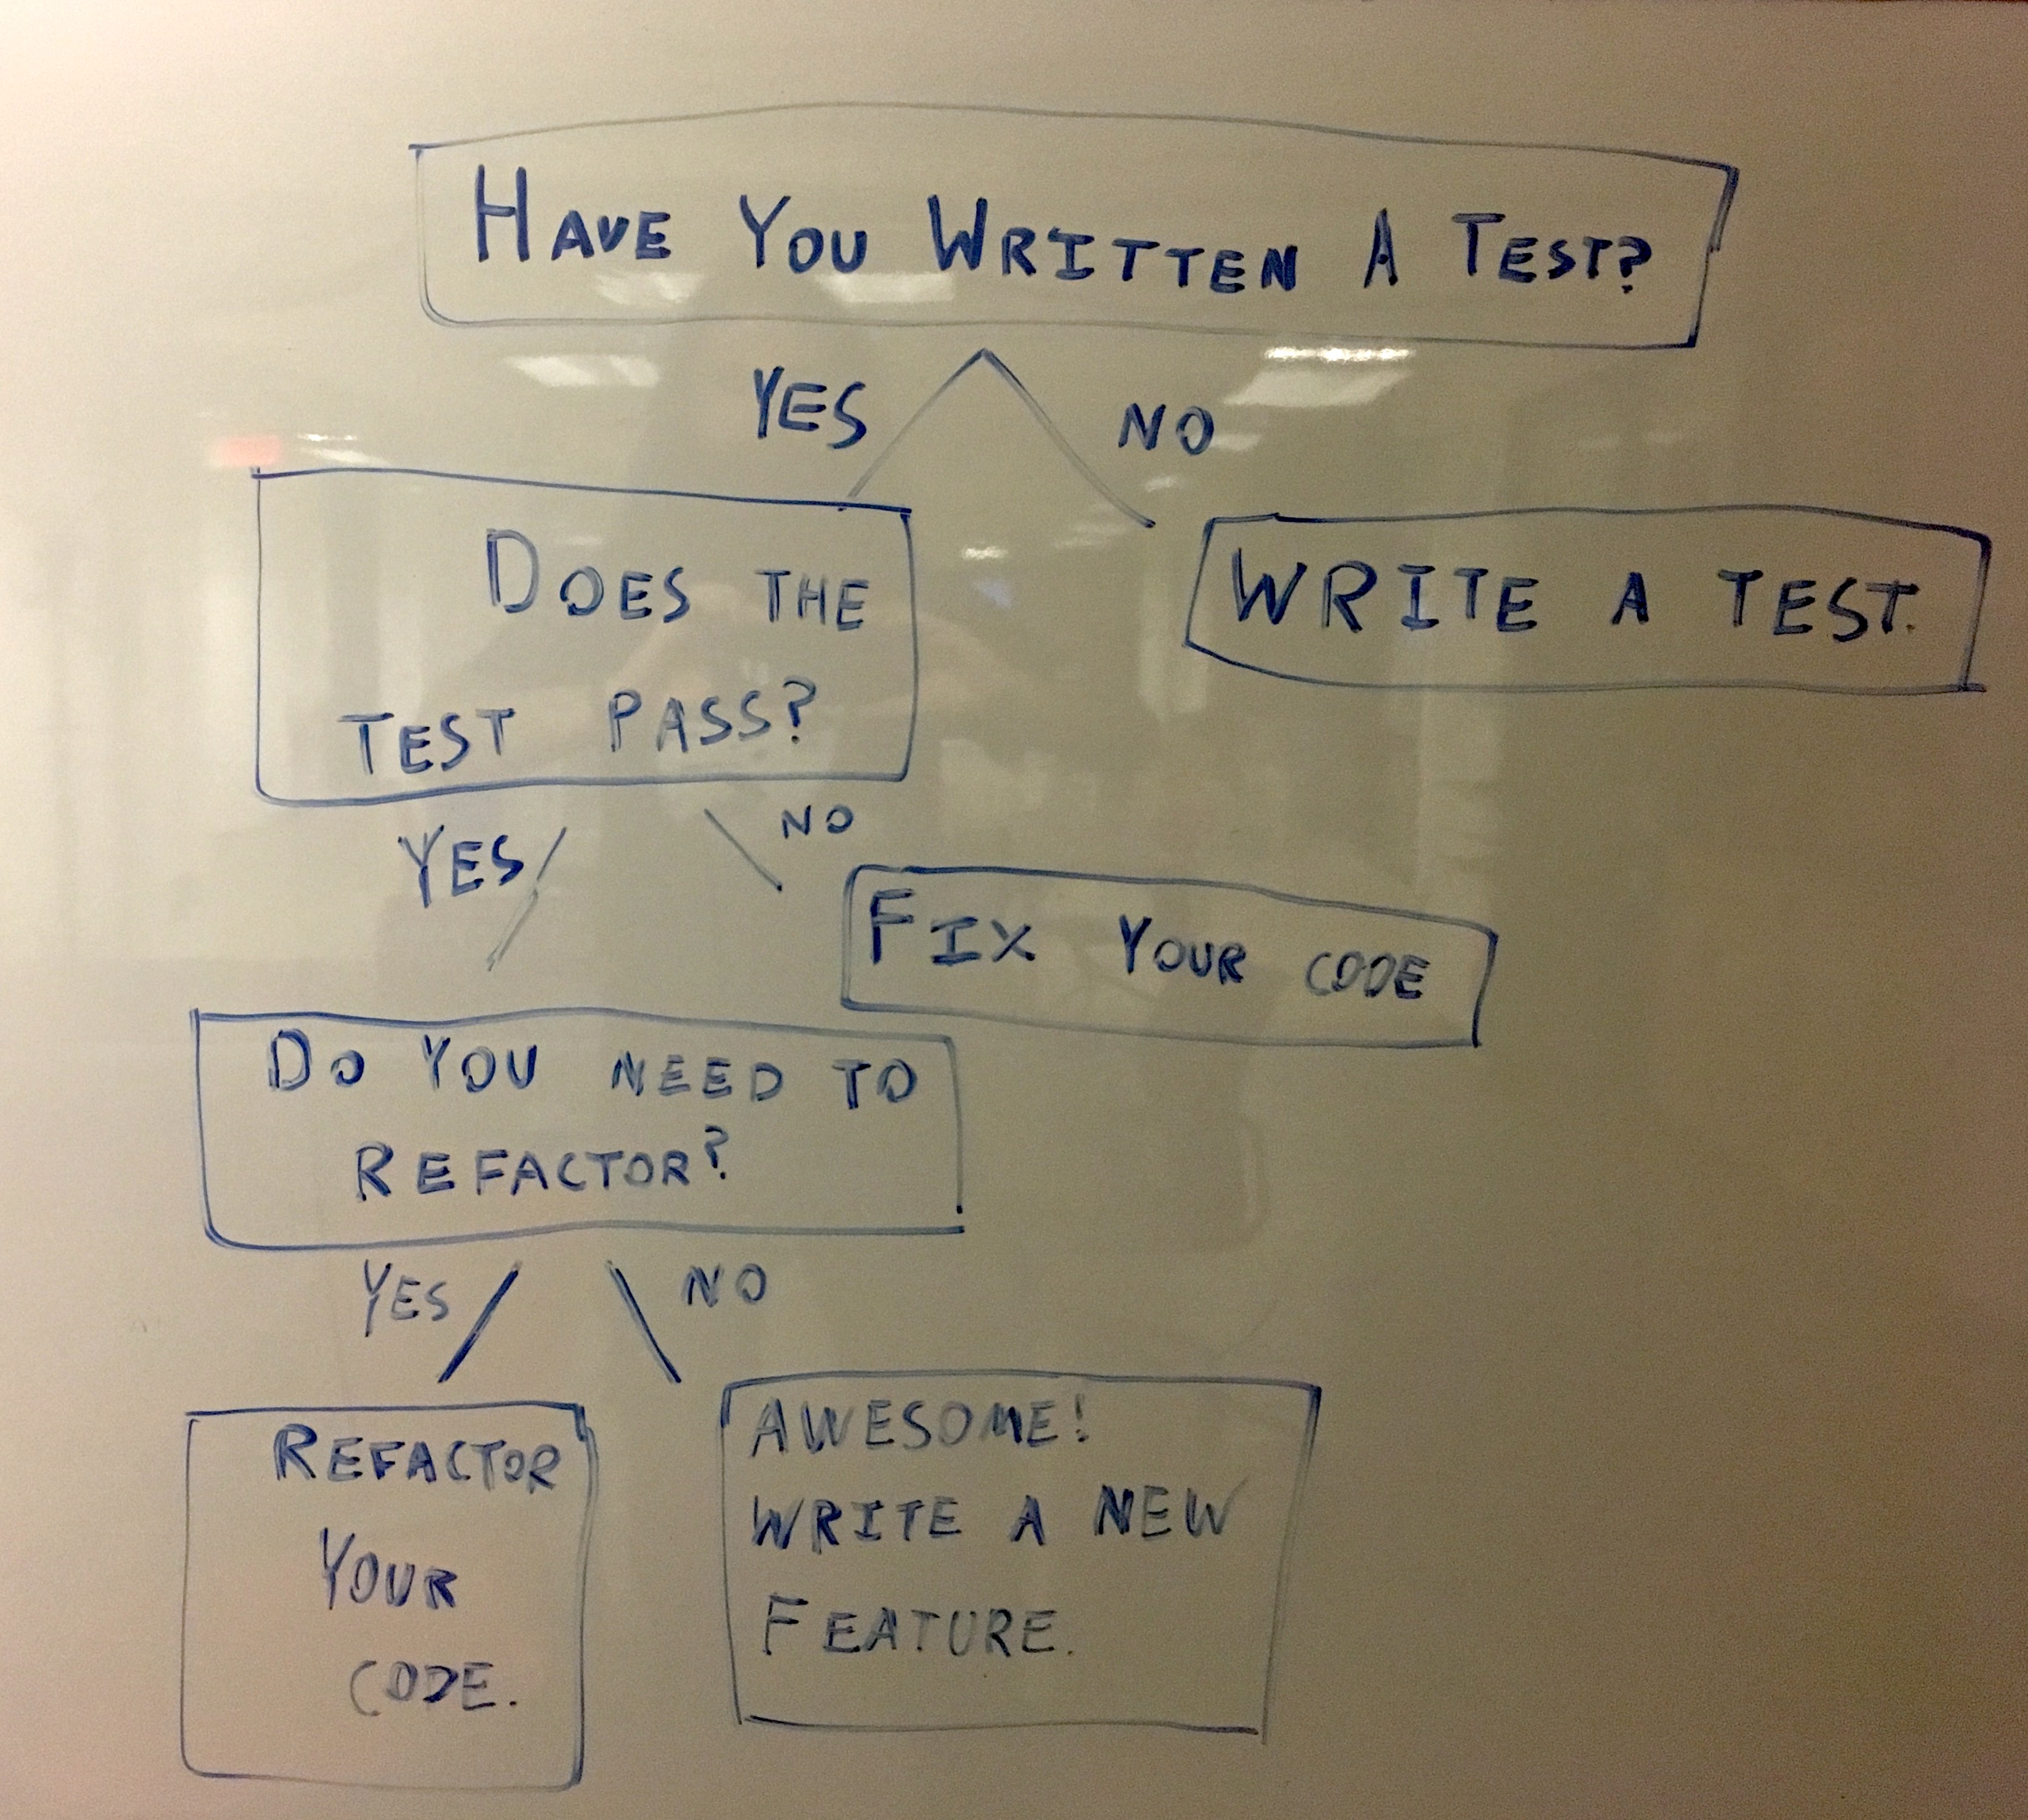 HAVE YOU WRITTEN A TEST?
YES
NO
DOES THE
TEST PASS?
WRITE A TEST.
YES
NO
FIX YOUR CODE
DO YOU NEED TO
REFACTOR?
YES
NO
REFACTOR
YOUR
CODE.
AWESOME!
WRITE A NEW
FEATURE.